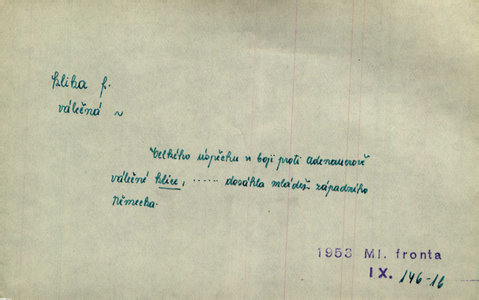 klika f.
válečná ~
Velkého úspěchu v boji proti adenauerově
válečné klice, ..... dosáhla mládež západního
Německa.
1953 Ml. fronta
IX. 146-16